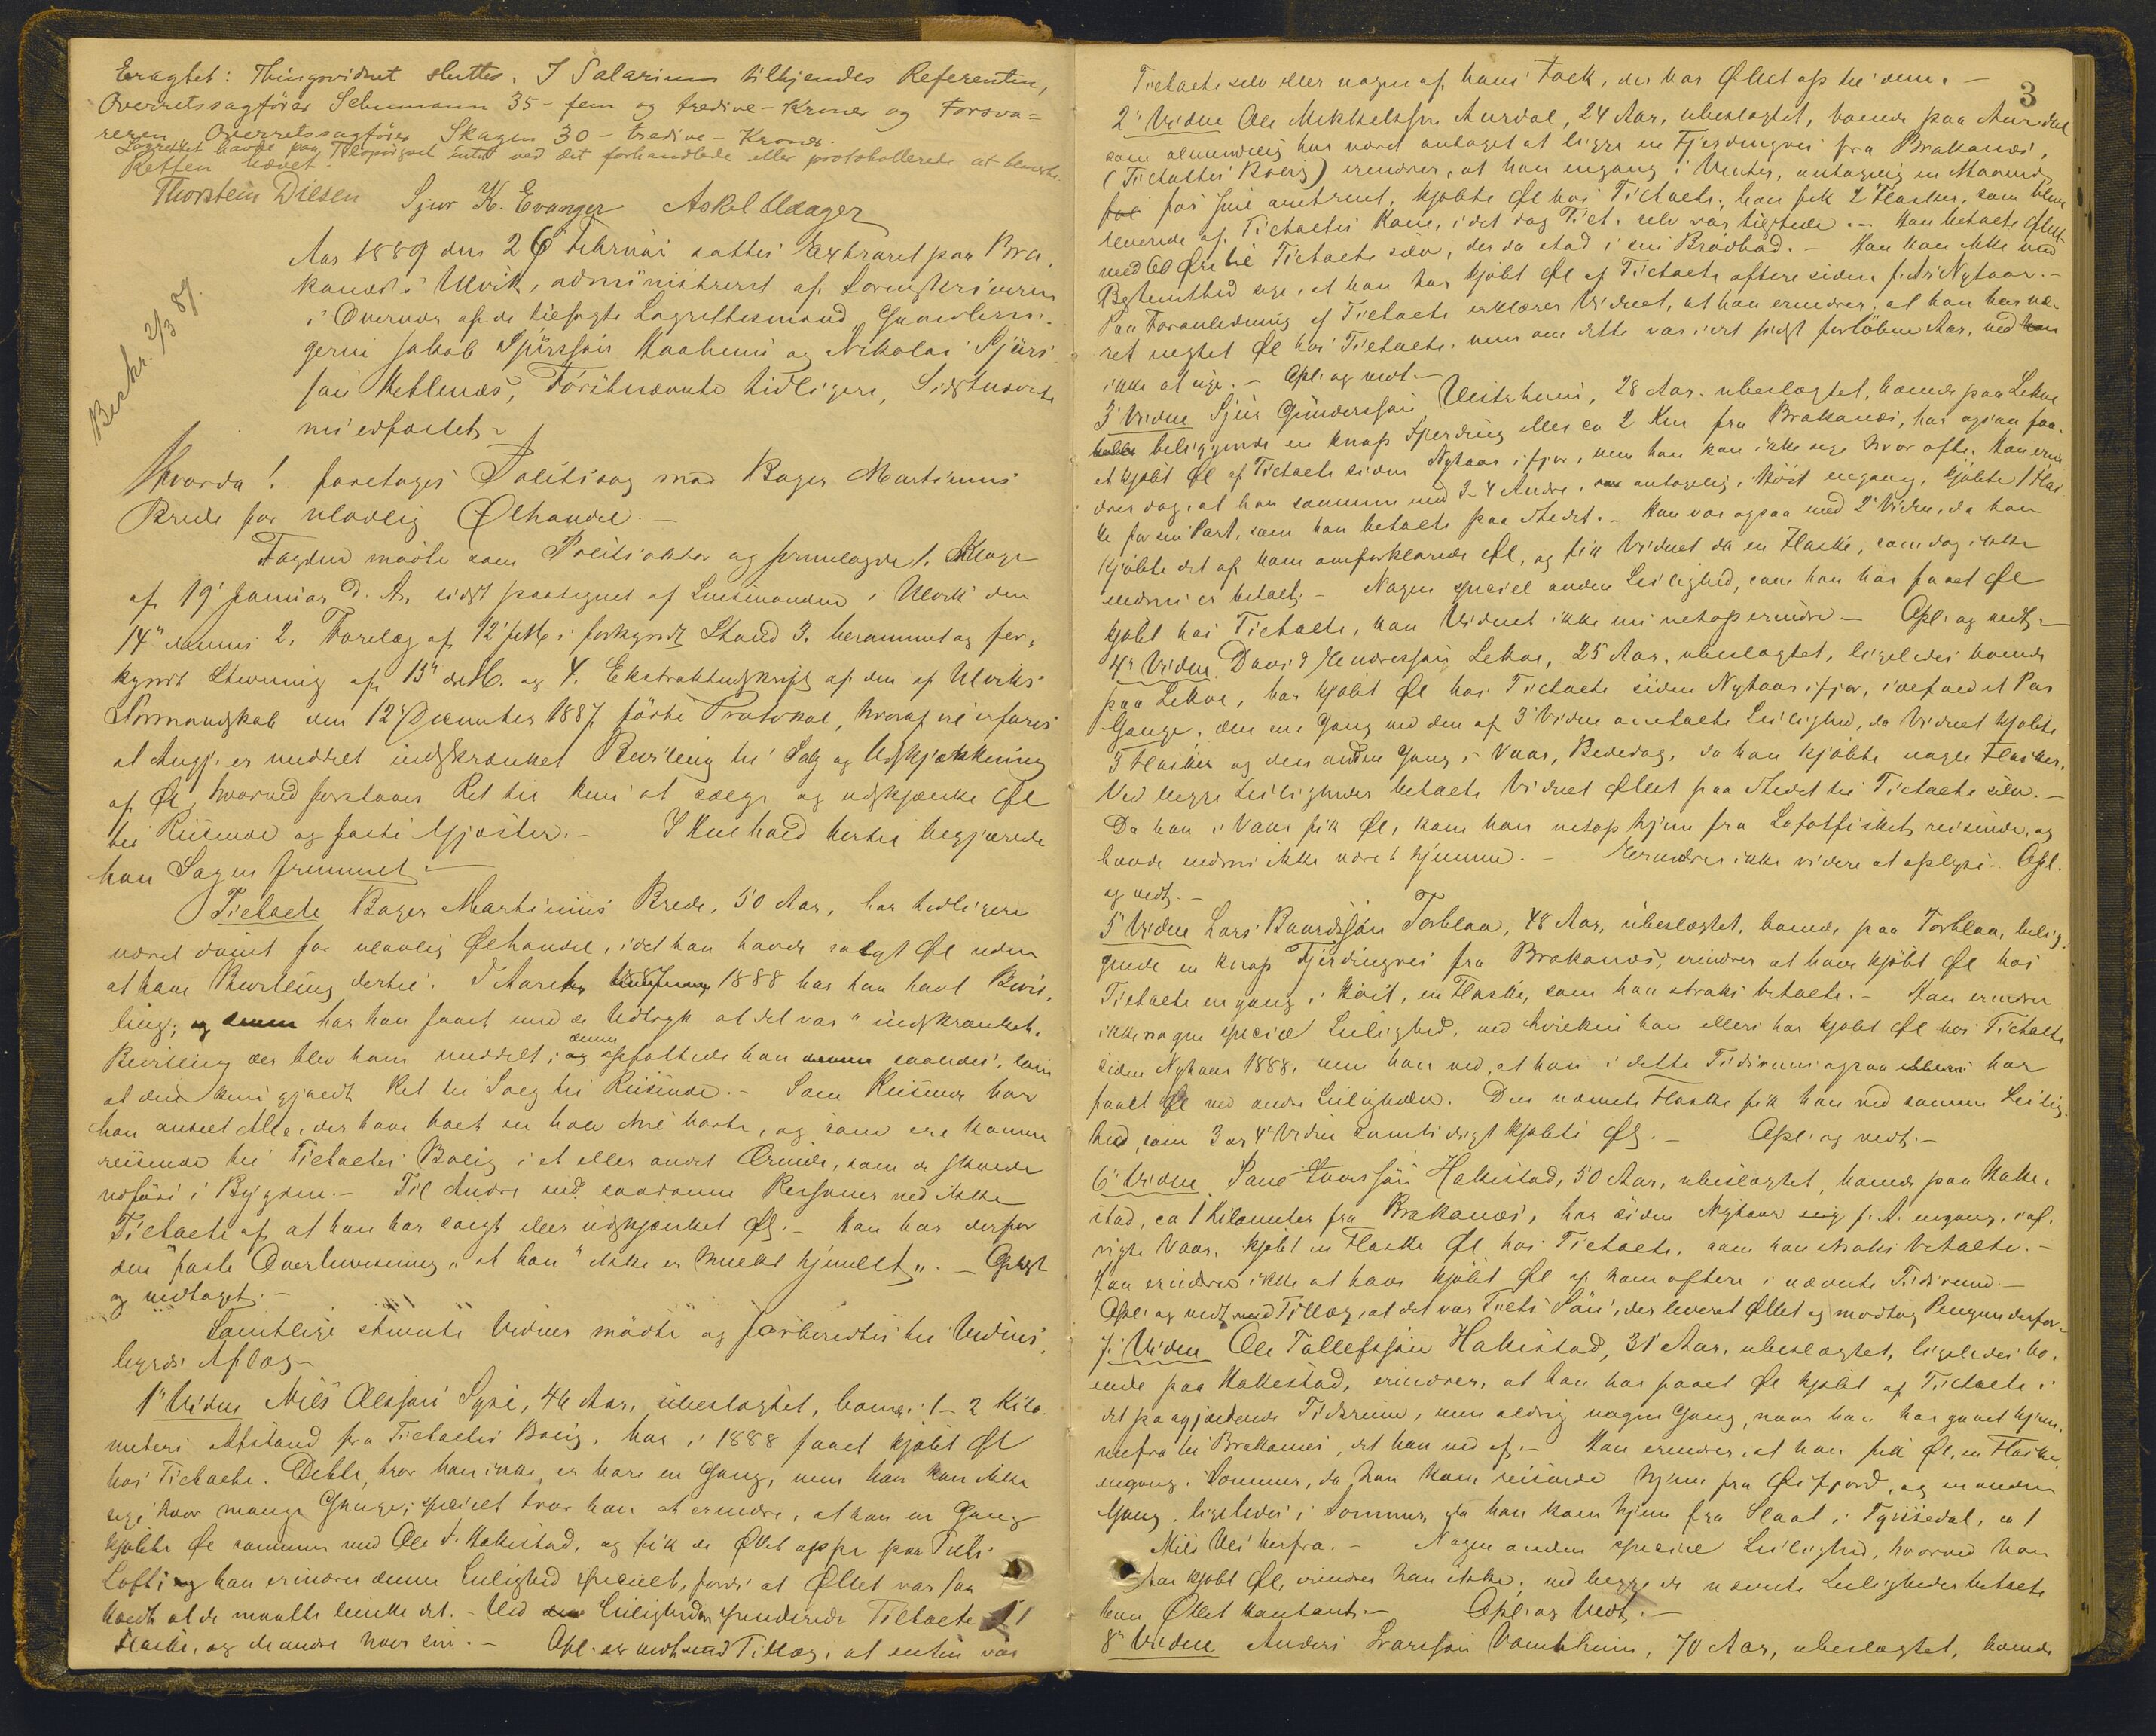 Eragtet: Thingsvidnet sluttes. I Salarium tilkjendes Referenten,
Overretssagfører Schumann 35 - fem og tredive - Kroner og Forsva=
reren, Overretssagfører Skagen 30 - tredive - Kroner.
Lagrettet havde paa Tilspørgsel intet ved det forhandlede eller protokollerede at bemærke.
Retten hævet.
Thorstein Diesen Sjur K. Evanger Askel Udager
Beskr. 2/3 89.
Aar 1889 den 26 Februar sattes Extraret paa Bra,
kanæs i Ulvik, administreret af Sorenskriveren
i Overvær af de tilsagte Lagrettesmænd
Jakob Sjursson og Nikolai Sjurs,
søn Metlenæs, Førstnævnte tidligere, Sidstnævnte
nu edfæstet.
Hvorda! foretages Politisag mod Bager Martinus
Brede for ulovlig Ølhandel. -
Fogden mødte som Politiaktor og fremlagde 1. Klage
af 19 Januar d. A., sidst paategnet af Lensmanden i Ulvik den
14 dennes 2. Forelæg af 12 i forkyndt Stand 3. berammet og for,
kyndt Stevning af 15 ds. M. og 4. Ekstraktudskrift af den af Ulviks
Formandskab den 12 December 1887 førte Protokol, hvoraf vil erfares
at Angj. er meddelt indskrænket Bevilling til Salg og Udskjænkning
af Øl, hvorved forstaaes Ret til kun at sælge og udskjænke Øl
til Reisende og faste Gjæster. - I Henhold hertil begjærede
han Sagen fremmet. -
Tiltalte Bager Martinius Brede, 50 Aar, har tidligere
været dømt for ulovlig Ølhandel, idet han havde solgt Øl uden
at have Bevilling dertil. I Aaret 1888 har han havt Bevil,
ling; har han faaet med de Udtryk at det var "indskrænket"
Bevilling der blev ham meddelt; denne opfattede han saaledes, som
at den kun gjaldt Ret til Salg til Reisende. - Som Reisende har
han anseet Alle, der have boet en halv Mil borte, og som ere komne
reisende til Tiltaltes Bolig i et eller andet Ærinde, som de skulde
udføre i Bygden. - Til Andre end saadanne Personer ved ikke
Tiltalte af, at han har solgt eller udskjænket Øl. - Han har derfor
den "faste Overbevisning" at han "ikke er hjemlet". - Oplæst
og vedtaget. -
Samtlige stevnte Vidner mødte og forberedtes til Vidnes,
byrds Aflæg. -
1ste Vidne Nils Olssøn Syse, 46 Aar, ubeslægtet, boende 1-2 Kilo
meters Afstand fra Tiltaltes Bolig, har i 1888 faaet kjøbt Øl
hos Tiltalte. Dette, tror han ikke, er bare en Gang, men han kan ikke
sige hvor mange Gange; specielt tror han at erindre, at han en Gang
kjøbte Øl sammen med Ole T. Hakestad, og fik de Øllet oppe paa Tiltes
Loft; han erindrer denne Leilighed specielt, fordi at Øllet var saa
koldt at de maatte lunke det. - Ved Leiligheden spenderede Tiltalte 1
Flaske, og de andre hver sin. - Opl. og vedt. med Tillæg, at enten var
3
Tiltalte selv eller nogen af hans Folk, der bar Øllet op til dem. -
2. Vidne Ole Mikkelssøn Aurdal, 24 Aar, ubeslægtet, boende paa Aurdal
som almindelig har været antaget at ligge en Fjerdingvei fra Brakanæs,
(Tiltaltes Bolig) erindrer, at han engang i Vinter, antagelig en Maaned
før Jul omtrent, kjøbte Øl hos Tiltalte, han fik 2 Flasker, som blev
leverede af Tiltaltes Kone, idet dog Tilt. selv var tilstede. - Han betalte Øllet
med 60 Øre til Tiltalte selv, der da stod i sin Brødbod. - Han kan ikke med
Bestemthed sige, at han har kjøbt Øl af Tiltalte oftere siden f. A. Nytaar. -
Paa Foranledning af Tiltalte erklærer Vidnet, at han erindrer, at han har væ-
ret negtet Øl hos Tiltalte, men om dette var i det sidst forløbne Aar, ved han
ikke at sige. - Opl. og vedt. -
3. Vidne Sjur Gunderssøn, 28 Aar, ubeslægtet, boende paa Lekve
beliggende en knap Fjerding eller ca 2 Km fra Brakanæs, har ogsaa faa,
et kjøbt Øl af Tiltalte siden Nytaar ifjor, men han kan ikke sige hvor ofte. Han erin
drer dog, at han sammen med 3-4 Andre, antagelig i Høst engang, kjøbte 1 Flas
ke for sin Part, som han betalte paa Stedet. - Han var ogsaa med 2. Vidne, da han
kjøbte det af ham omforklarede Øl, og fik Vidnet da en Flaske, som dog ikke
endnu er betalt. - Nogen speciel anden Leilighed, som han har faaet Øl
kjøbt hos Tiltalte, kan Vidnet ikke nu netop erindre - Opl. og vedt. -
4de Vidne David Endressøn Lekve, 25 Aar, ubeslægtet, ligeledes boende
paa Lekve, har kjøbt Øl hos Tiltalte siden Nytaar ifjor, ialfald et Par
Gange, den ene Gang ved den af 3. Vidne omtalte Leilighed, da Vidnet kjøbte
3 Flasker og den anden Gang i Vaar, Bededag, da han kjøbte nogle Flasker.
Ved begge Leiligheder betalte Vidnet Øllet paa Stedet til Tiltalte selv. -
Da han i Vaar fik Øl, kom han netop hjem fra Lofotfisket, reisende, og
havde endnu ikke været hjemme. - Erindrer ikke videre at oplyse. - Opl.
og vedt. -
5. Vidne Lars Baardssøn Torblaa, 48 Aar, ubeslægtet, boende paa Torblaa, belig,
gende en knap Fjerdingvei fra Brakanæs, erindrer at have kjøbt Øl hos
Tiltalte en gang i Høst, en Flaske, som han straks betalte. - Han erindrer
ikke nogen speciel Leilighed, ved hvilken han ellers har kjøbt Øl hos Tiltalte
siden Nytaar 1888, men han ved, at han i dette Tidsrum ogsaa har
faaet Øl ved andre Leiligheder. Den nævnte Flaske fik han ved samme Leilig,
hed, som 3 og 4de Vidne samtidigt kjøbte Øl. - Opl. og vedt. -
6. Vidne Hakestad, 50 Aar, ubeslægtet, boende paa Hake,
stad, ca 1 Kilometer fra Brakanæs, har siden Nytaar f. A. engang, iaf,
vigte Vaar, kjøbt en Flaske Øl hos Tiltalte, som han straks betalte. -
Han erindrer ikke at have kjøbt Øl af ham oftere i nævnte Tidsrum. -
Opl. og vedt. med Tillæg, at det var Tilts Søn, der leveret Øllet og modtog Pengene derfor.
7. Vidne Ole Tollefssøn Hakestad, 31 Aar, ubeslægtet, ligeledes bo,
ende paa Hakestad, erindrer, at han har faaet Øl kjøbt af Tiltalte i
det paagjældende Tidsrum, men aldrig nogen Gang, naar han har gaaet hjem,
mefra til Brakanæs, det han ved af. - Han erindrer, at han fik Øl, en Flaske,
engang i Sommer, da han kom reisende hjem fra Osefjord, og en anden
Gang, ligeledes i Sommer, da han kom hjem fra Slaat i Tyssedal, ca 1
Mils Vei herfra. - Nogen anden speciel Leilighed, hvorved han
har kjøbt Øl, erindrer han ikke; ved begge de nævnte Leiligheder betalte
han Øllet kontant. - Opl. og Vedt. -
8de Vidne Anders Larssøn Vambheim, 70 Aar, ubeslægtet, boende